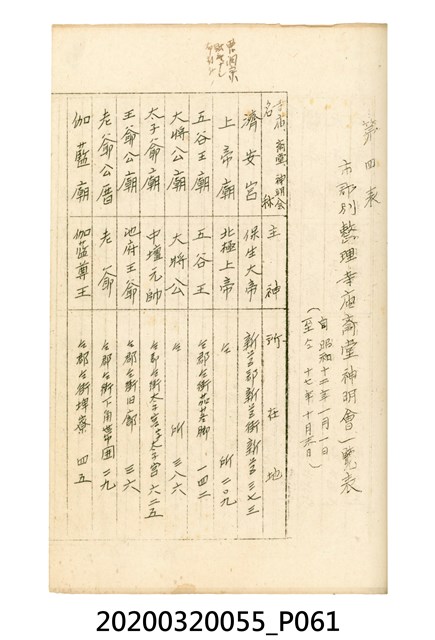 第四表
市郡別整理寺庙斎堂神明會一覽表
(自昭和十二年一月一日
至仝十七年十月末日)
寺庙、斎堂、神明会名称 主神 所在地
濟安宮 保生大帝 新営郡新営街新営三七三
上帝廟 北極上帝 仝所二〇九
五谷王廟 五谷王 仝郡仝街茄苳脚一四二
大将公廟 大将公 仝所三八六
太子爺廟 中壇元帥 仝郡仝街太子宮字太子宮六二五
王爺公廟 池府王爺 仝郡仝街旧廍三六
老爺公厝 老爺 仝郡仝街下角帯囲二九
伽藍廟 伽藍尊王 仝郡仝街埤寮四五
20200320055_P061